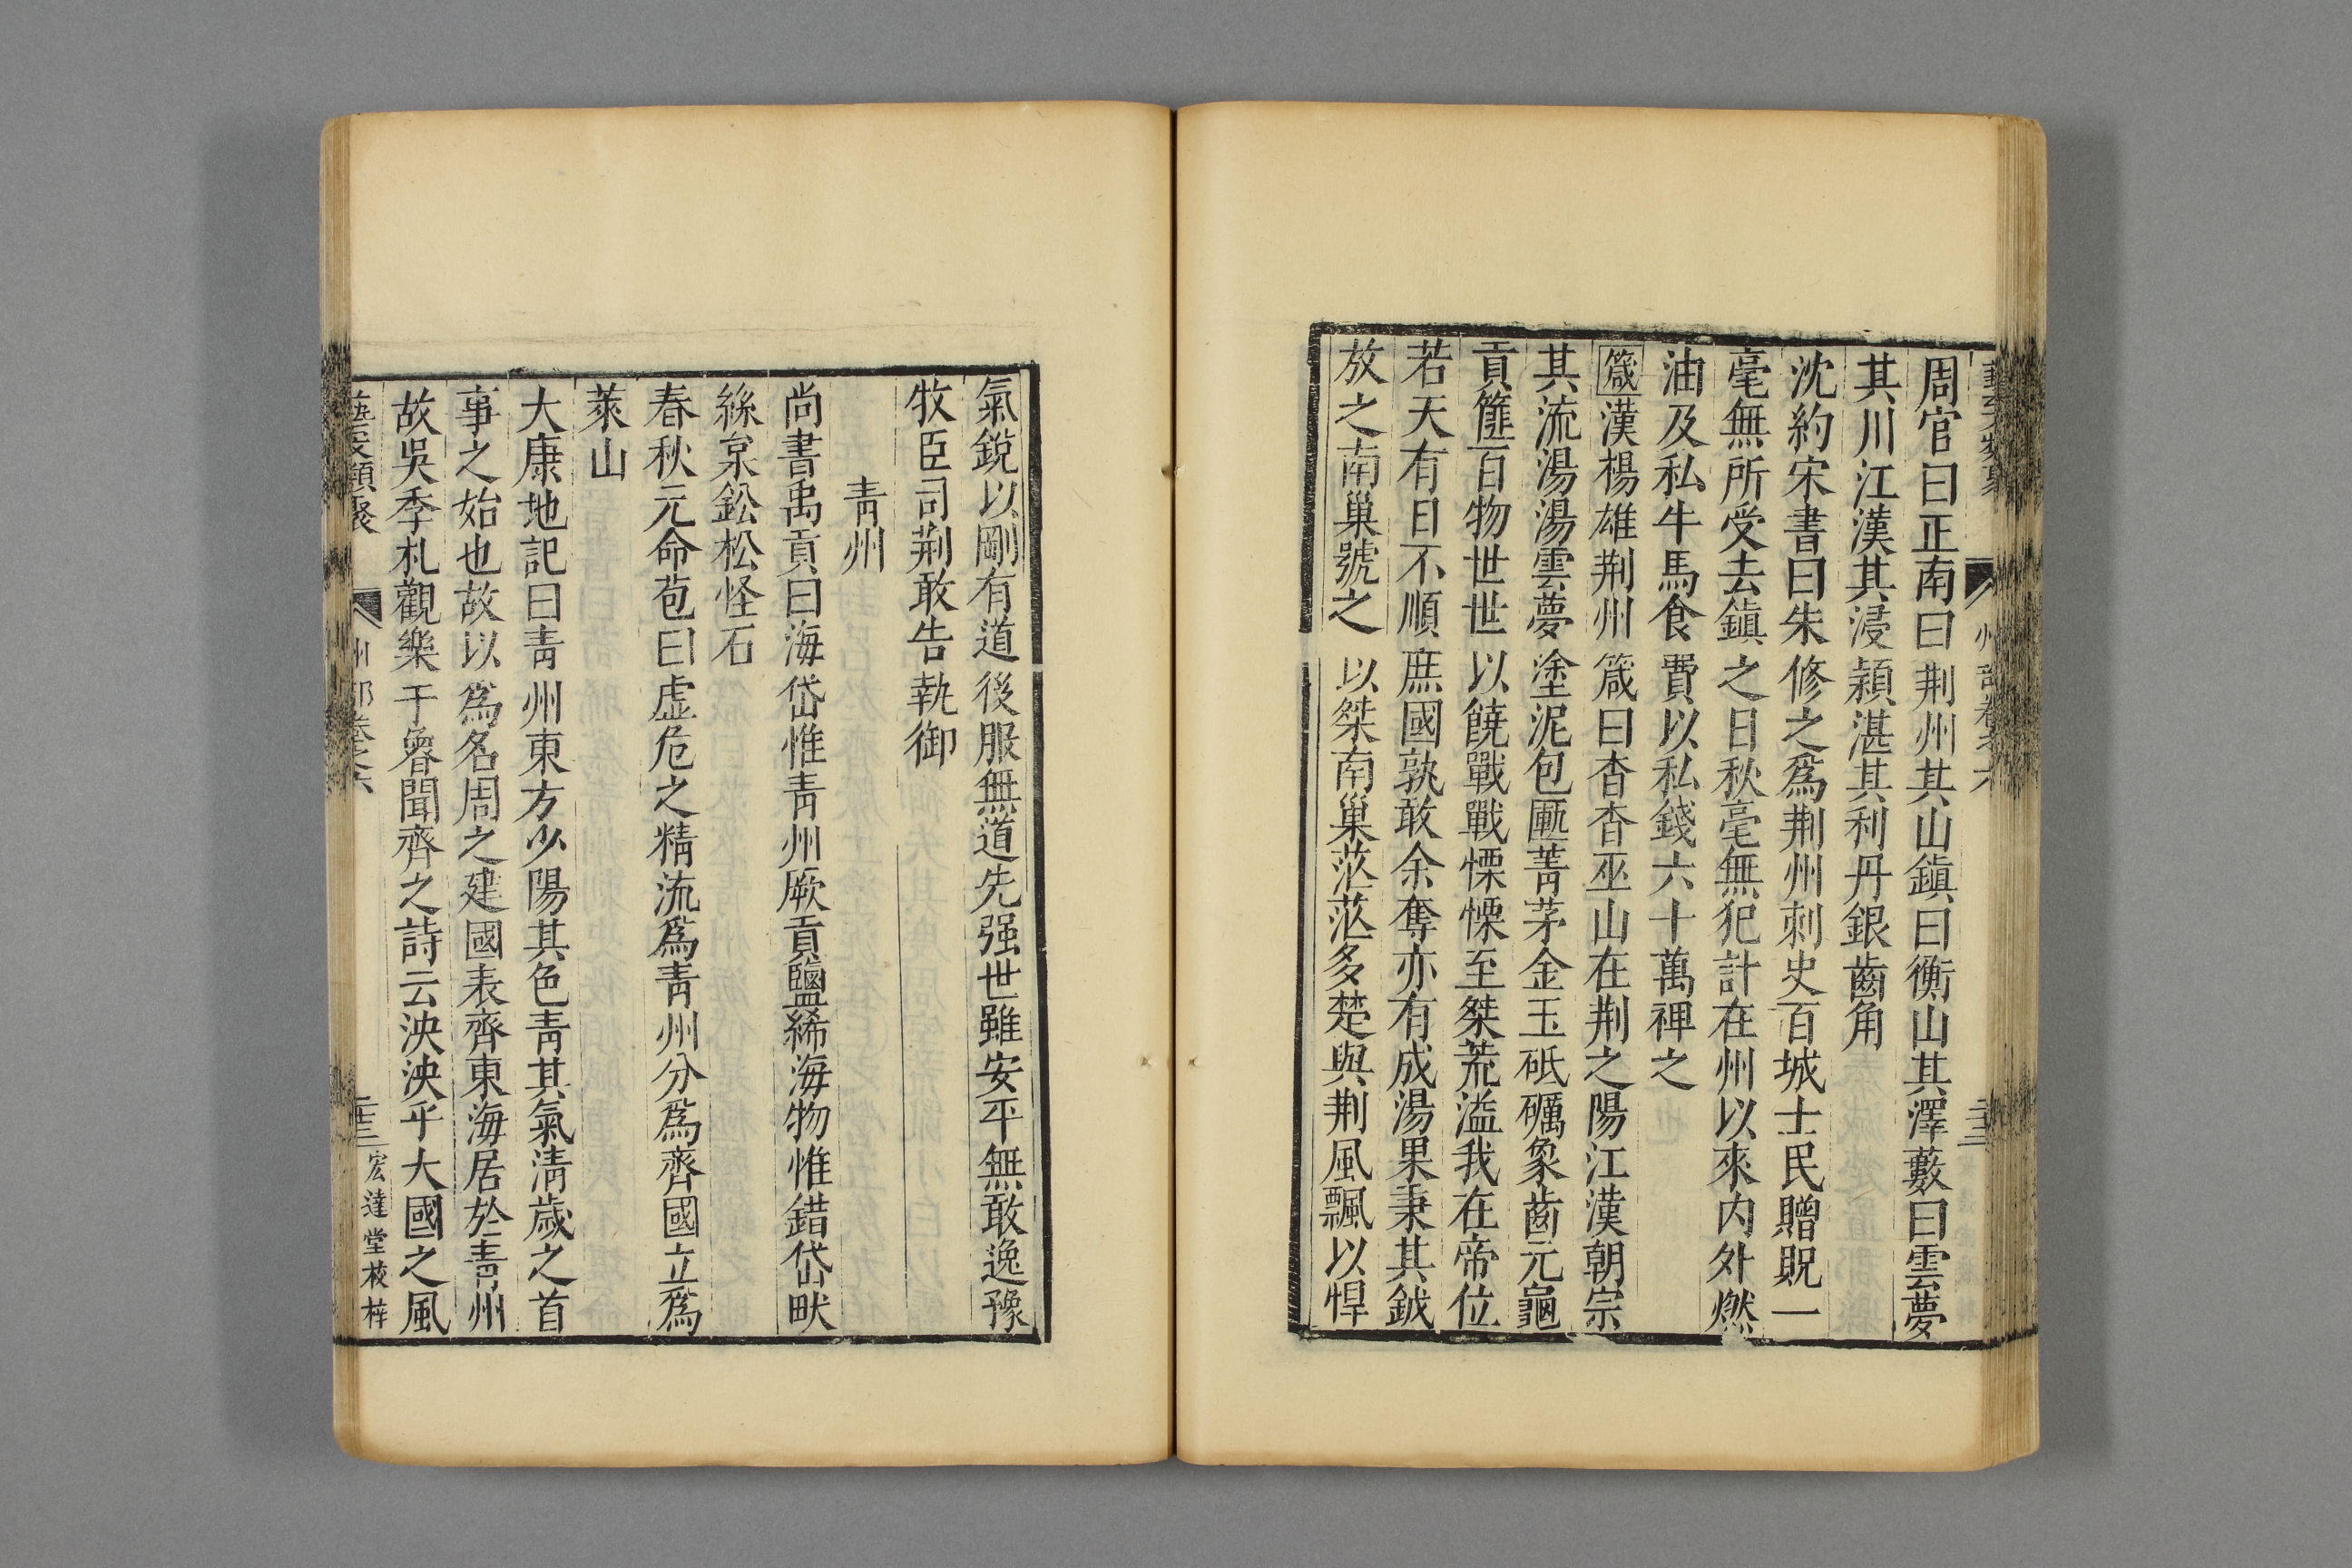 周官曰正南曰荆州其山鎮曰衡山其澤藪曰雲夢
其川江漢其浸潁湛其利丹銀齒角
沈約宋書曰朱修之爲荆州刺史百城士民贈貺一
毫無所受去鎮之日秋毫無犯計在州以來内外燃
油及私牛馬食費以私錢六十萬裨之
箴漢楊雄荆州箴曰杳杳巫山在荆之陽江漢朝宗
其流湯湯雲夢塗泥包匭菁茅金玉砥礪象齒元龜
貢篚百物世世以饒戰戰慄慄至桀荒溢我在帝位
若天有日不順庶國孰敢余奪亦有成湯果秉其鉞
放之南巢號之以桀南巢茫茫多楚與荆風飄以悍
氣銳以剛有道後服無道先强世雖安平無敢逸豫
牧臣司荆敢告執御
青州
尚書禹貢曰海岱惟青州厥貢鹽絺海物惟錯岱畎
絲枲鈆松怪石
春秋元命苞曰虚危之精流爲青州分爲齊國立爲
萊山
大康地記曰青州東方少陽其色青其氣清歳之首
事之始也故以爲名周之建國表齊東海居於青州
故吳季札觀樂于魯聞齊之詩云泱泱乎大國之風
州部卷之六
二十三
宏達堂校梓